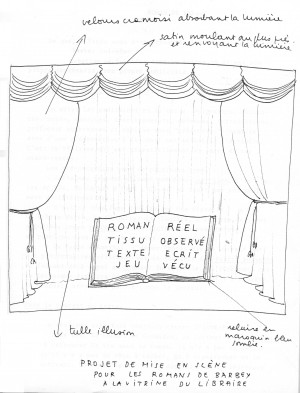 velours cramoisi absorbant la lumière
satin moulant au plus près
et renvoyant la lumière
ROMAN
TISSU
TEXTE
JEU
RÉEL
OBSERVÉ
ECRIT
VÉCU
tulle illusion
reliure en
maroquin bleu
sombre.
PROJET DE MISE EN SCÈNE
POUR LES ROMANS DE BARBEY
A LA VITRINE DU LIBRAIRE